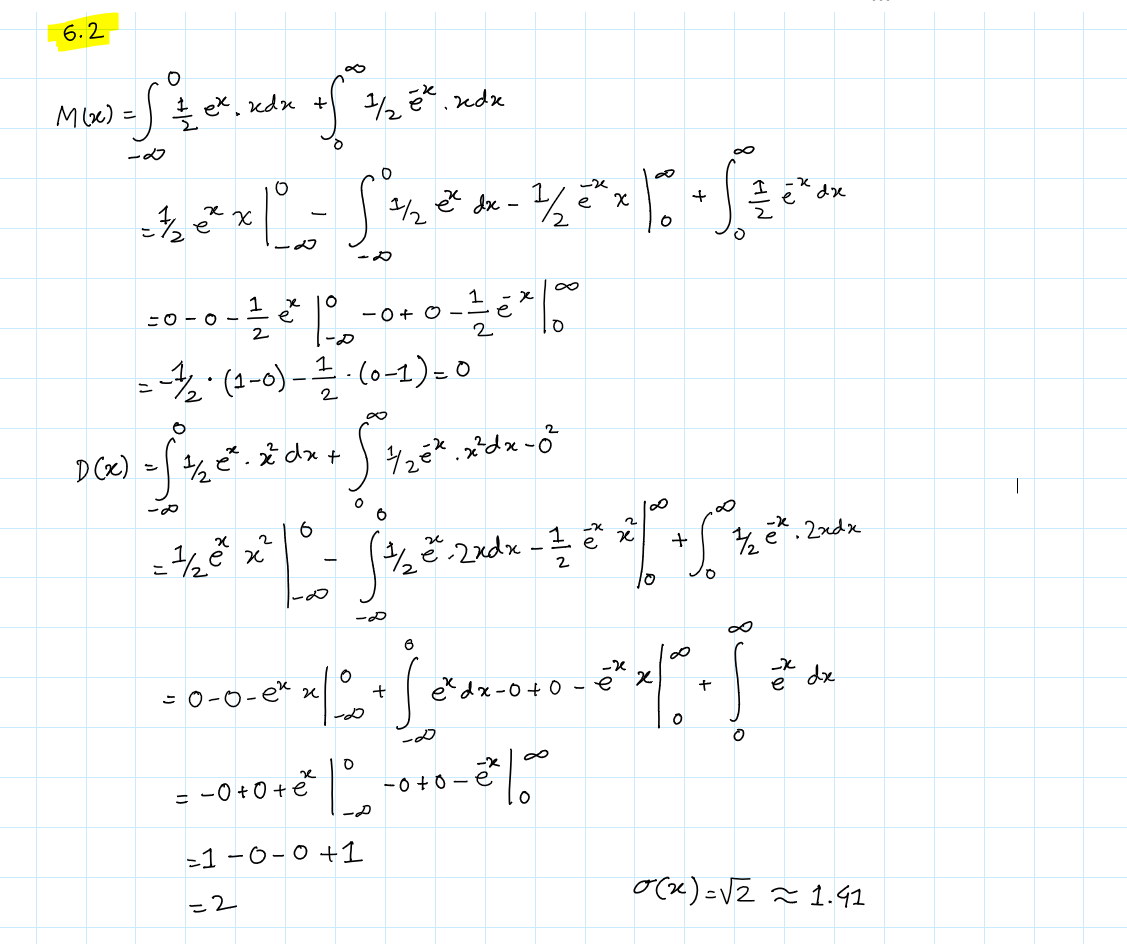 6.2
M(x) = ∫_{-∞}^{0} 1/2 e^x . xdx + ∫_{0}^{∞} 1/2 e^{-x} . xdx
= 1/2 e^x x |_{-∞}^{0} - ∫_{-∞}^{0} 1/2 e^x dx - 1/2 e^{-x} x |_{0}^{∞} + ∫_{0}^{∞} 1/2 e^{-x} dx
= 0 - 0 - 1/2 e^x |_{-∞}^{0} - 0 + 0 - 1/2 e^{-x} |_{0}^{∞}
= -1/2 · (1-0) - 1/2 · (0-1) = 0
D(x) = ∫_{-∞}^{0} 1/2 e^x . x^2 dx + ∫_{0}^{∞} 1/2 e^{-x} . x^2 dx - 0^2
= 1/2 e^x x^2 |_{-∞}^{0} - ∫_{-∞}^{0} 1/2 e^x . 2xdx - 1/2 e^{-x} x^2 |_{0}^{∞} + ∫_{0}^{∞} 1/2 e^{-x} . 2xdx
= 0 - 0 - e^x x |_{-∞}^{0} + ∫_{-∞}^{0} e^x dx - 0 + 0 - e^{-x} x |_{0}^{∞} + ∫_{0}^{∞} e^{-x} dx
= -0 + 0 + e^x |_{-∞}^{0} - 0 + 0 - e^{-x} |_{0}^{∞}
= 1 - 0 - 0 + 1
= 2
σ(x) = √2 ≈ 1.41